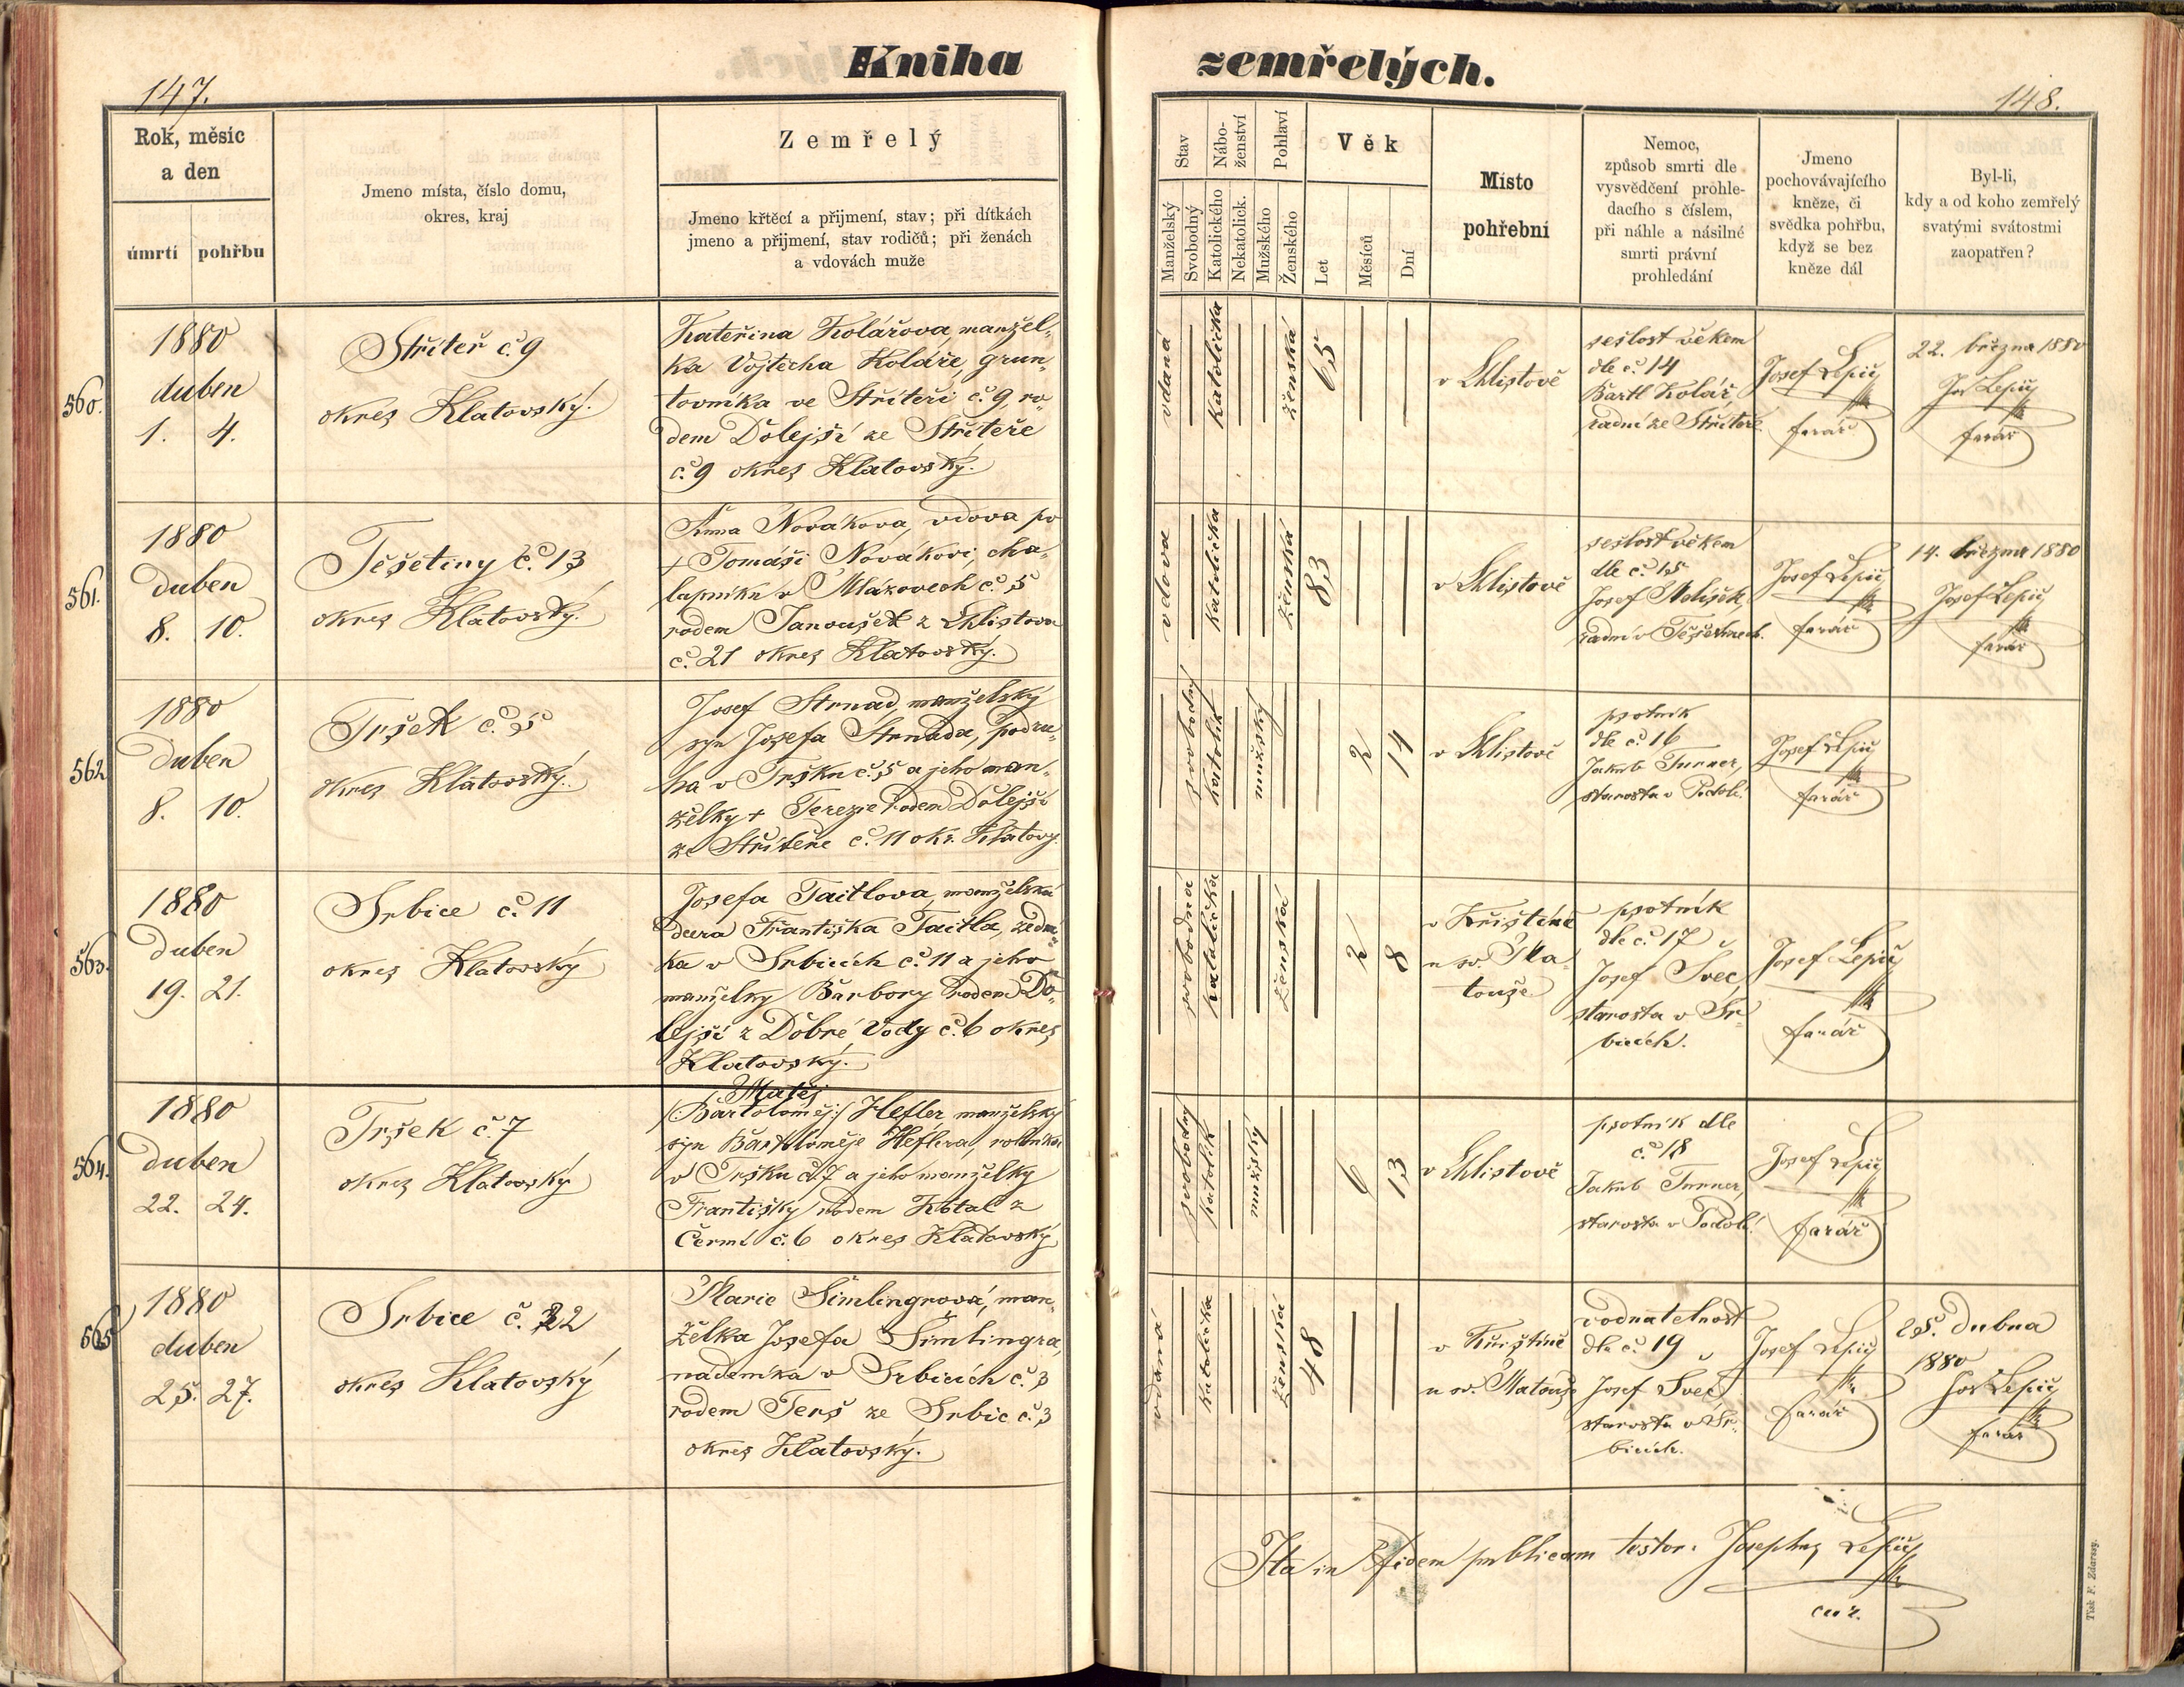 Kniha
zemřelých.
147.
148.
Rok, měsíc
a den
úmrtí pohřbu
Jmeno místa, číslo domu,
okres, kraj
Zemřelý
Jmeno křtěcí a přijmení, stav; při dítkách
jmeno a přijmení, stav rodičů; při ženách
a vdovách muže
Stav
Manželský
Svobodný
Nábo-
ženství
Katolického
Nekatolick.
Pohlaví
Mužského
Ženského
Věk
Let
Měsíců
Dní
Místo
pohřební
Nemoc,
způsob smrti dle
vysvědčení prohle-
dacího s číslem,
při náhle a násilné
smrti právní
prohledání
Jmeno
pochovávajícího
kněze, či
svědka pohřbu,
když se bez
kněze dál
Byl-li,
kdy a od koho zemřelý
svatými svátostmi
zaopatřen?
560.
1880
duben
1. 4.
Stříteř č. 9
okres Klatovský.
Kateřina Kolářova, manžel-
ka Vojtěcha Koláře, grun-
tovníka ve Stříteři č. 9, ro-
dem Dolejší ze Stříteře
č. 9 okres Klatovský.
vdaná
katolička
ženská
65
v Chlistově
sešlost věkem
dle č. 14
Bartl Kolář,
radní ze Stříteře
Josef Lepič
farář
22. března 1880
Jos Lepič
farář
561.
1880
duben
8. 10.
Těšetiny č. 13
okres Klatovský.
Anna Novákova, vdova po
+ Tomáši Novákovi, cha-
lupníku v Mlákovech č. 5
rodem Janoušek z Chlistova
č. 21 okres Klatovský.
vdova
katolička
ženská
83
v Chlistově
sešlost věkem
dle č. 15
Josef
radní v Těšetinech.
Josef Lepič
farář
14. března 1880
Josef Lepič
farář
562.
1880
duben
8. 10.
Tršek č. 5
okres Klatovský.
Josef Strnad, manželský
syn Josefa Strnada, podru-
ha v Tršku č. 5 a jeho man-
želky + Terezie rodem Dolejší
ze Stříteře č. 11 okr. Klatovy.
svobodný
katolík
mužský
2
14
v Chlistově
psotník
dle č. 16
Jakub Turner,
starosta v Podolí.
Josef Lepič
farář
563.
1880
duben
19. 21.
Srbice č. 11
okres Klatovský
Josefa Taitlova, manželská
dcera Františka Taitla, zední-
ka v Srbicích č. 11 a jeho
manželky Barbory rodem Do-
lejší z Dobré Vody č. 6 okres
Klatovský.
svobodná
katolička
ženská
2
8
v Křištíně
u sv. Ma-
touše
psotník
dle č. 17
Josef Švec,
starosta v Sr-
bicích.
Josef Lepič
farář
564.
1880
duben
22. 24.
Tršek č. 7
okres Klatovský
Matěj
/:Bartoloměj:/ Hefler manželský
syn Bartoloměje Heflera, rolníka
v Tršku č. 7 a jeho manželky
Františky rodem Kotal z
Černí č. 6 okres Klatovský
svobodný
katolík
mužský
6
13
v Chlistově
psotník dle
č. 18
Jakub Turner,
starosta v Podolí.
Josef Lepič
farář
565
1880
duben
25. 27.
Srbice č. 22
okres Klatovský
Marie Šimlingrová, man-
želka Josefa Šimlingra,
nádeníka v Srbicích č. 3
rodem Terš ze Srbic č. 3
okres Klatovský.
vdaná
katolička
ženská
48
v Křištíně
u sv. Matouše
vodnatelnost
dle č. 19
Josef Švec
starosta v Sr-
bicích.
Josef Lepič
farář
25. dubna
1880
Jos Lepič
farář
Ita in fidem publicam testor: Josephus Lepič
cur.
Tisk F. Zdarssy.